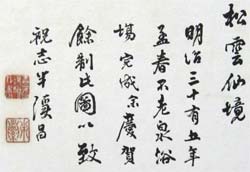 松雲仙境
明治三十有五年
孟春不老泉浴
場完成余慶賀
餘制此圖以致
祝志半
昌